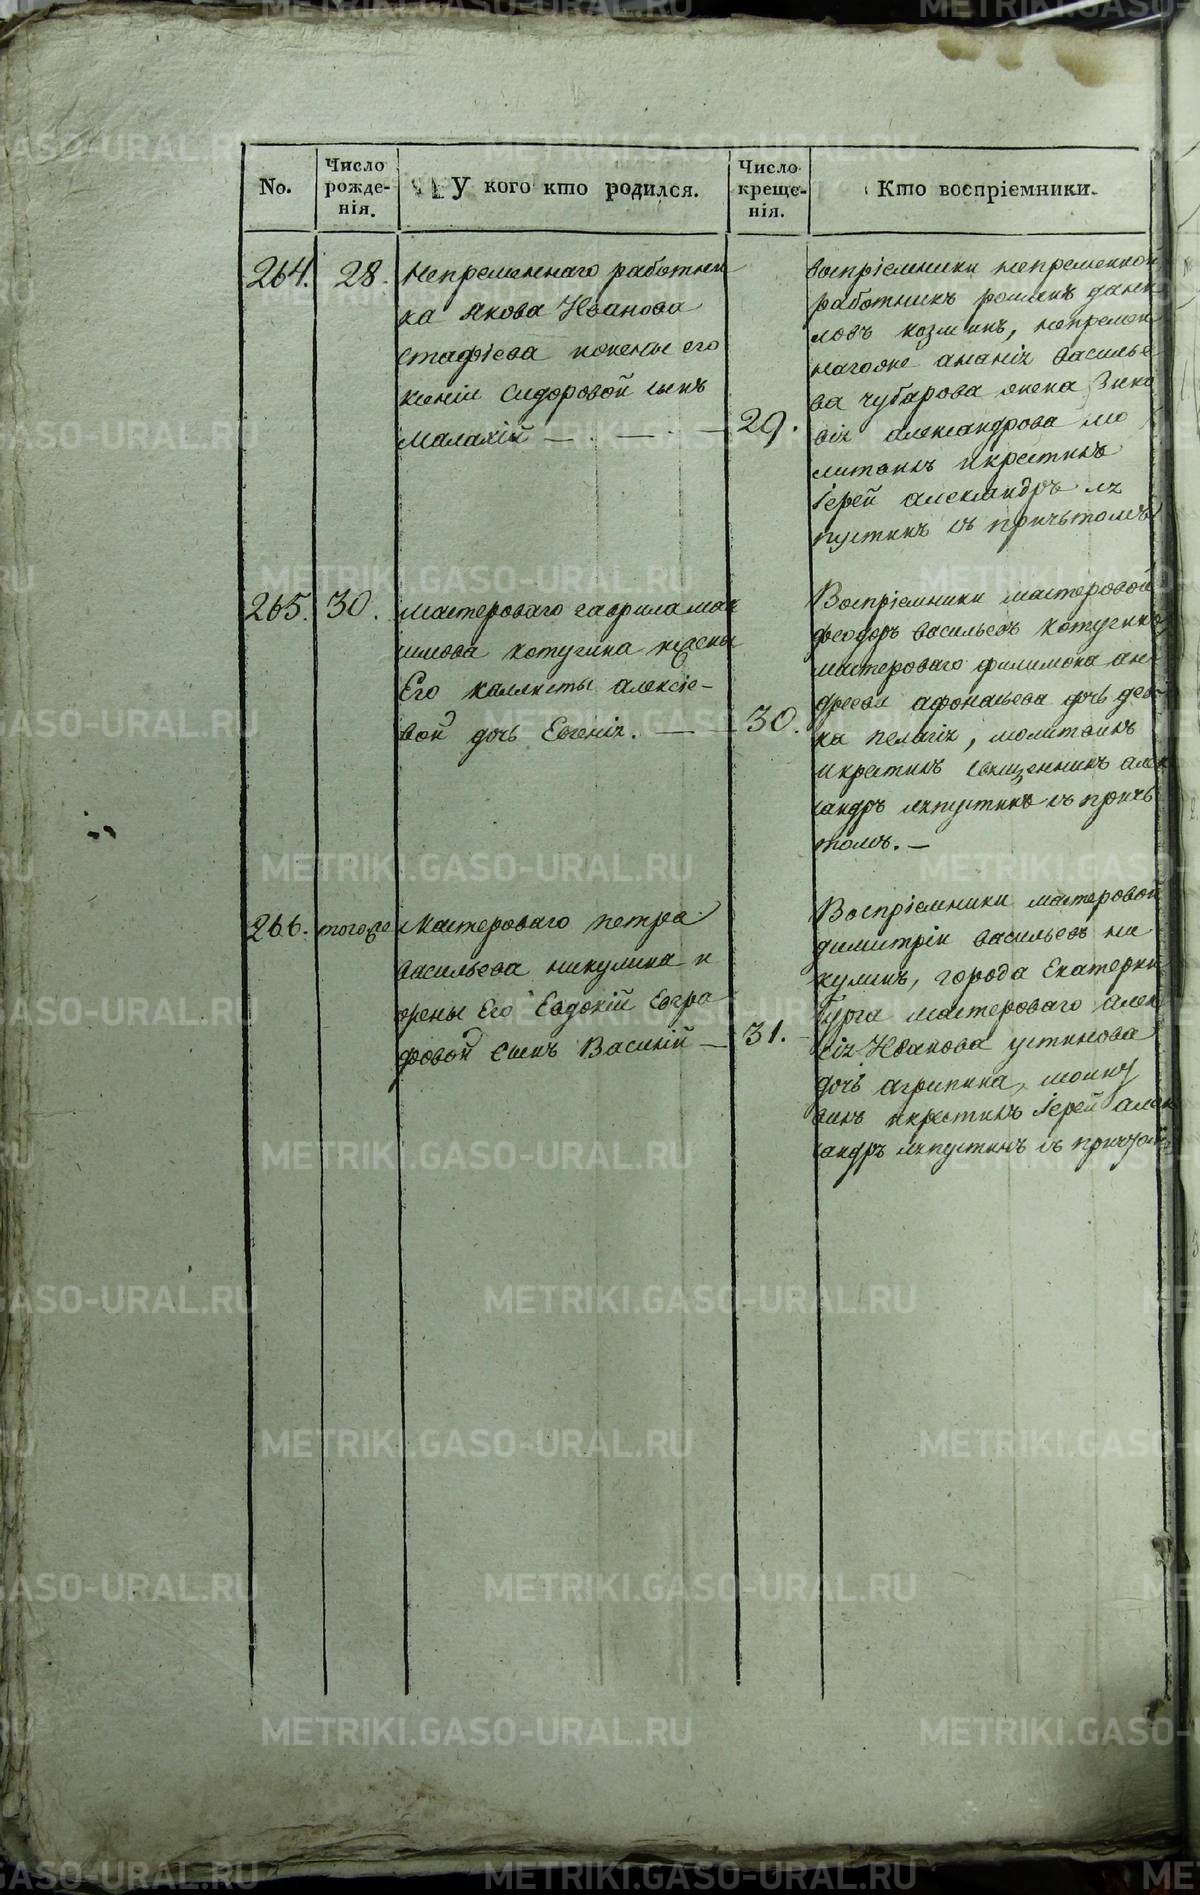 No.
Число рожде-
нія.
У кого кто родился.
Число креще-
нія.
Кто воспріемники.
264. 28. Непременнаго работни
ка Якова Иванова
Стафіева и жены его
Ксеніи Сидоровой сынъ
Малахій — . — . — 29.
Воспріемники непременной
работникъ романъ дани
ловъ козминъ, непремен
нагоже ананіи василье
ва чубарова жена Зино
віа александрова мо
литвилъ и крестилъ
Іерей александръ
съ причьтомъ
265. 30. мастероваго гаврила мак
симова котугина и жены
Его каллисты алексіе-
вой дочь Евгенія. — — 30.
Воспріемники мастеровой
феодоръ васильевъ котугинъ
мастероваго филимона ан
дреева афонасьева дочь дев
ка пелагія, молитвилъ
и крестилъ священникъ алек
сандръ съ причь
томъ. —
266. тогоже Мастероваго петра
васильева никулина и
жены Его Евдокіи Евгра
фовой сынъ Василій — 31.
Воспріемники мастеровой
димитріи васильевъ ни
кулинъ, города Екатерин
бурга мастероваго алек
сія Иванова устинова
дочь агрипина, молит
вилъ и крестилъ Іерей алек
сандръ съ причтомъ
METRIKI.GASO-URAL.RU